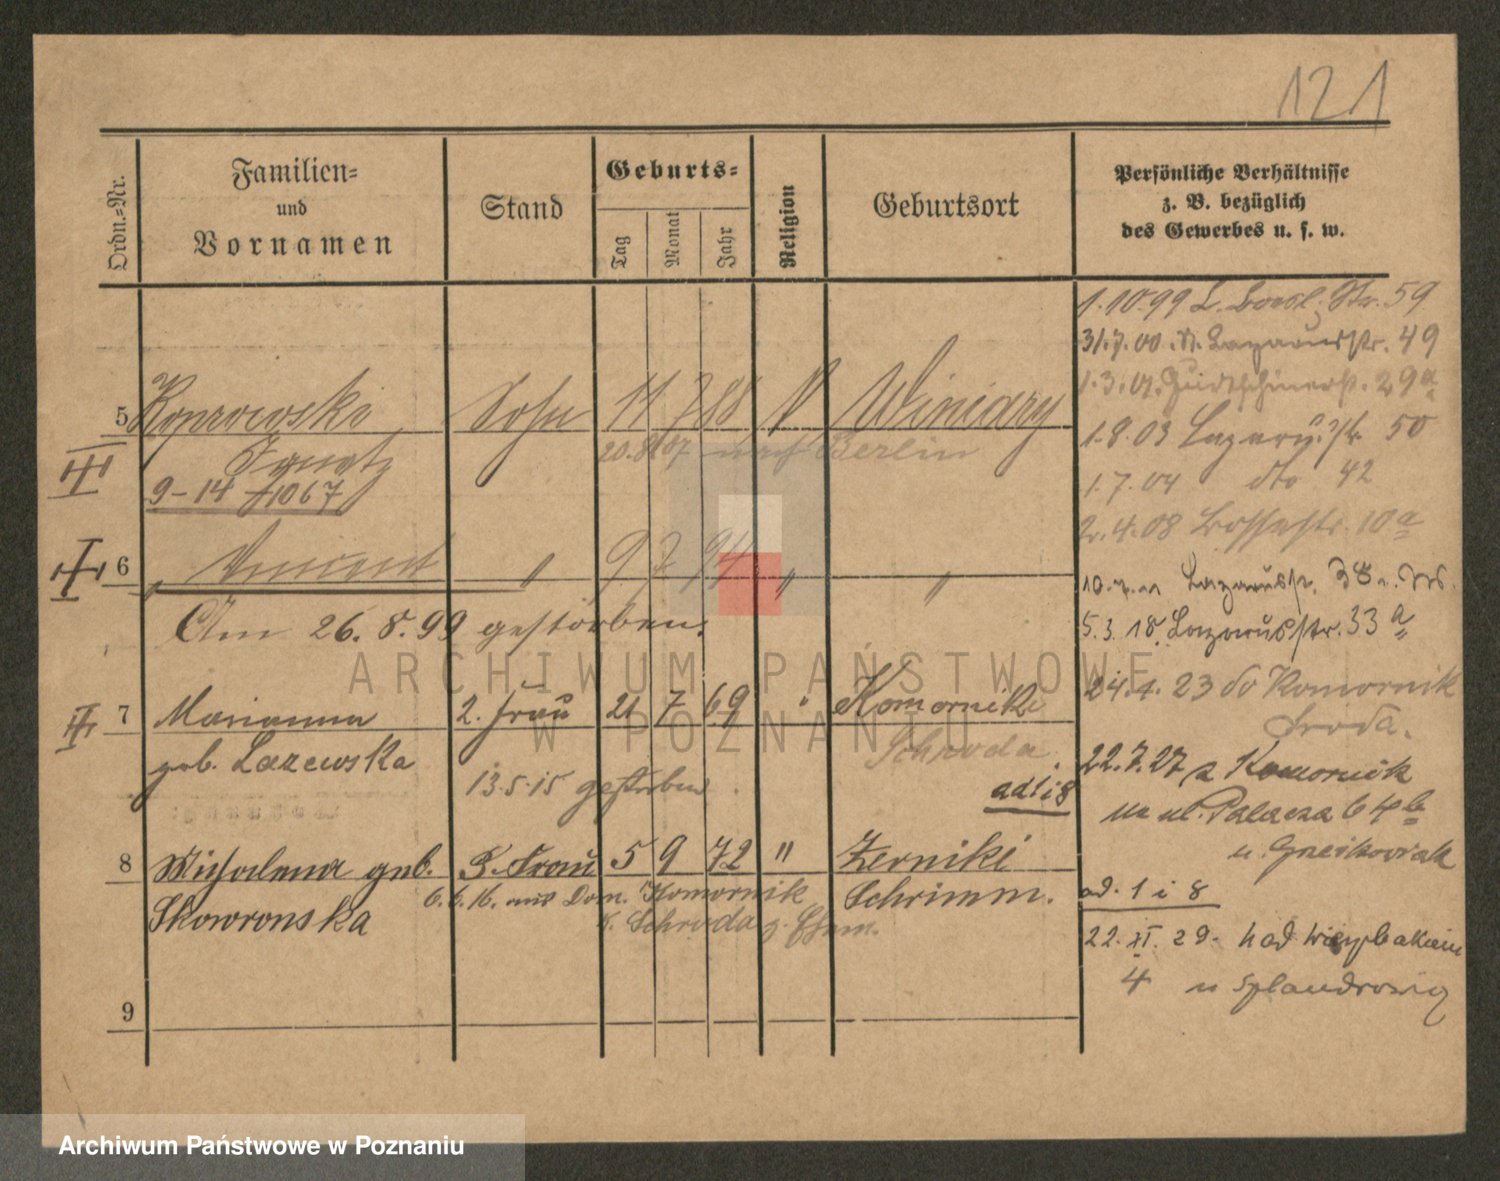 121
Ordn.=Nr.
Familien=
und
Vornamen
Stand
Geburts=
Tag
Monat
Jahr
Religion
Geburtsort
Persönliche Verhältnisse
z. B. bezüglich
des Gewerbes u. s. w.
1.10.99 Str. 59
31.7.00 Lazarusstr. 49
1.3.01. 29a
5 Sohn 11 7 88 Winiary
1.8.03 50
20.8.07 nach Berlin
III
9-14 1067
1.7.04 dto 42
2.4.08 10a
I
6 Vincent " 9 7 94 " "
Lazarusstr.
Am 26. 8. 99 gestorben.
5.3.18. Lazarusstr. 33a
II
7 Marianna 2. Frau 21 7 69 " Komorniki
24.4.23 do Komornik
Sroda.
geb. Lazewska
Schroda
13.5.15 gestorben.
ad 1 i 8
22.7.27 z Komornik
8 Michalina geb. 3. Frau 5 9 72 " Zerniki
Skowronska
6.6.16. aus Dom. Komornik
K. Schroda z. Ehem.
Schrimm.
ad. 1 i 8
22. XI. 29.
4 u
9
ARCHIWUM PAŃSTWOWE
W POZNANIU
Archiwum Państwowe w Poznaniu